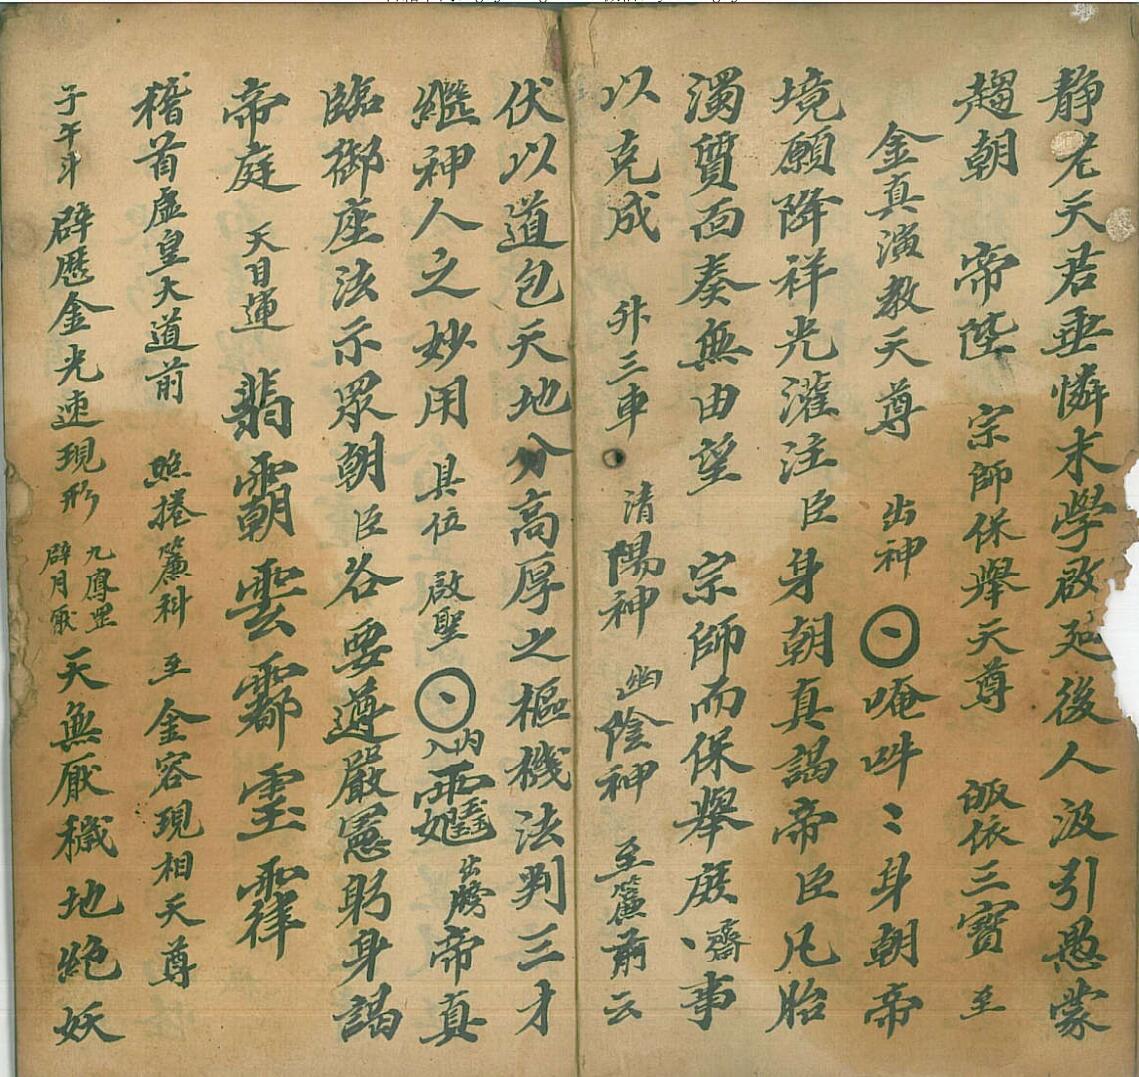 靜老天君垂憐末學啟廸後人汲引愚蒙
趨朝 帝陛 宗師保舉天尊 皈依三寶 至
金真演教天尊 出神 唵吽〻身朝帝
境願降祥光灌注臣身朝真謁帝臣凡胎
濁質面奏無由望 宗師而保舉庶齋事
以克成 升三車 清陽神 幽陰神 至簾前云
伏以道包天地分高厚之樞機法判三才
繼神人之妙用 具位 啟聖 入内 出 帝真
臨御座法示眾朝臣各要遵嚴憲躬身謁
帝庭 天目運
稽首虛皇大道前 照捲簾科 至 金容現相天尊
子午斗 辟歷金光速現形 九鳳罡 辟月厭 天無厭穢地絕妖